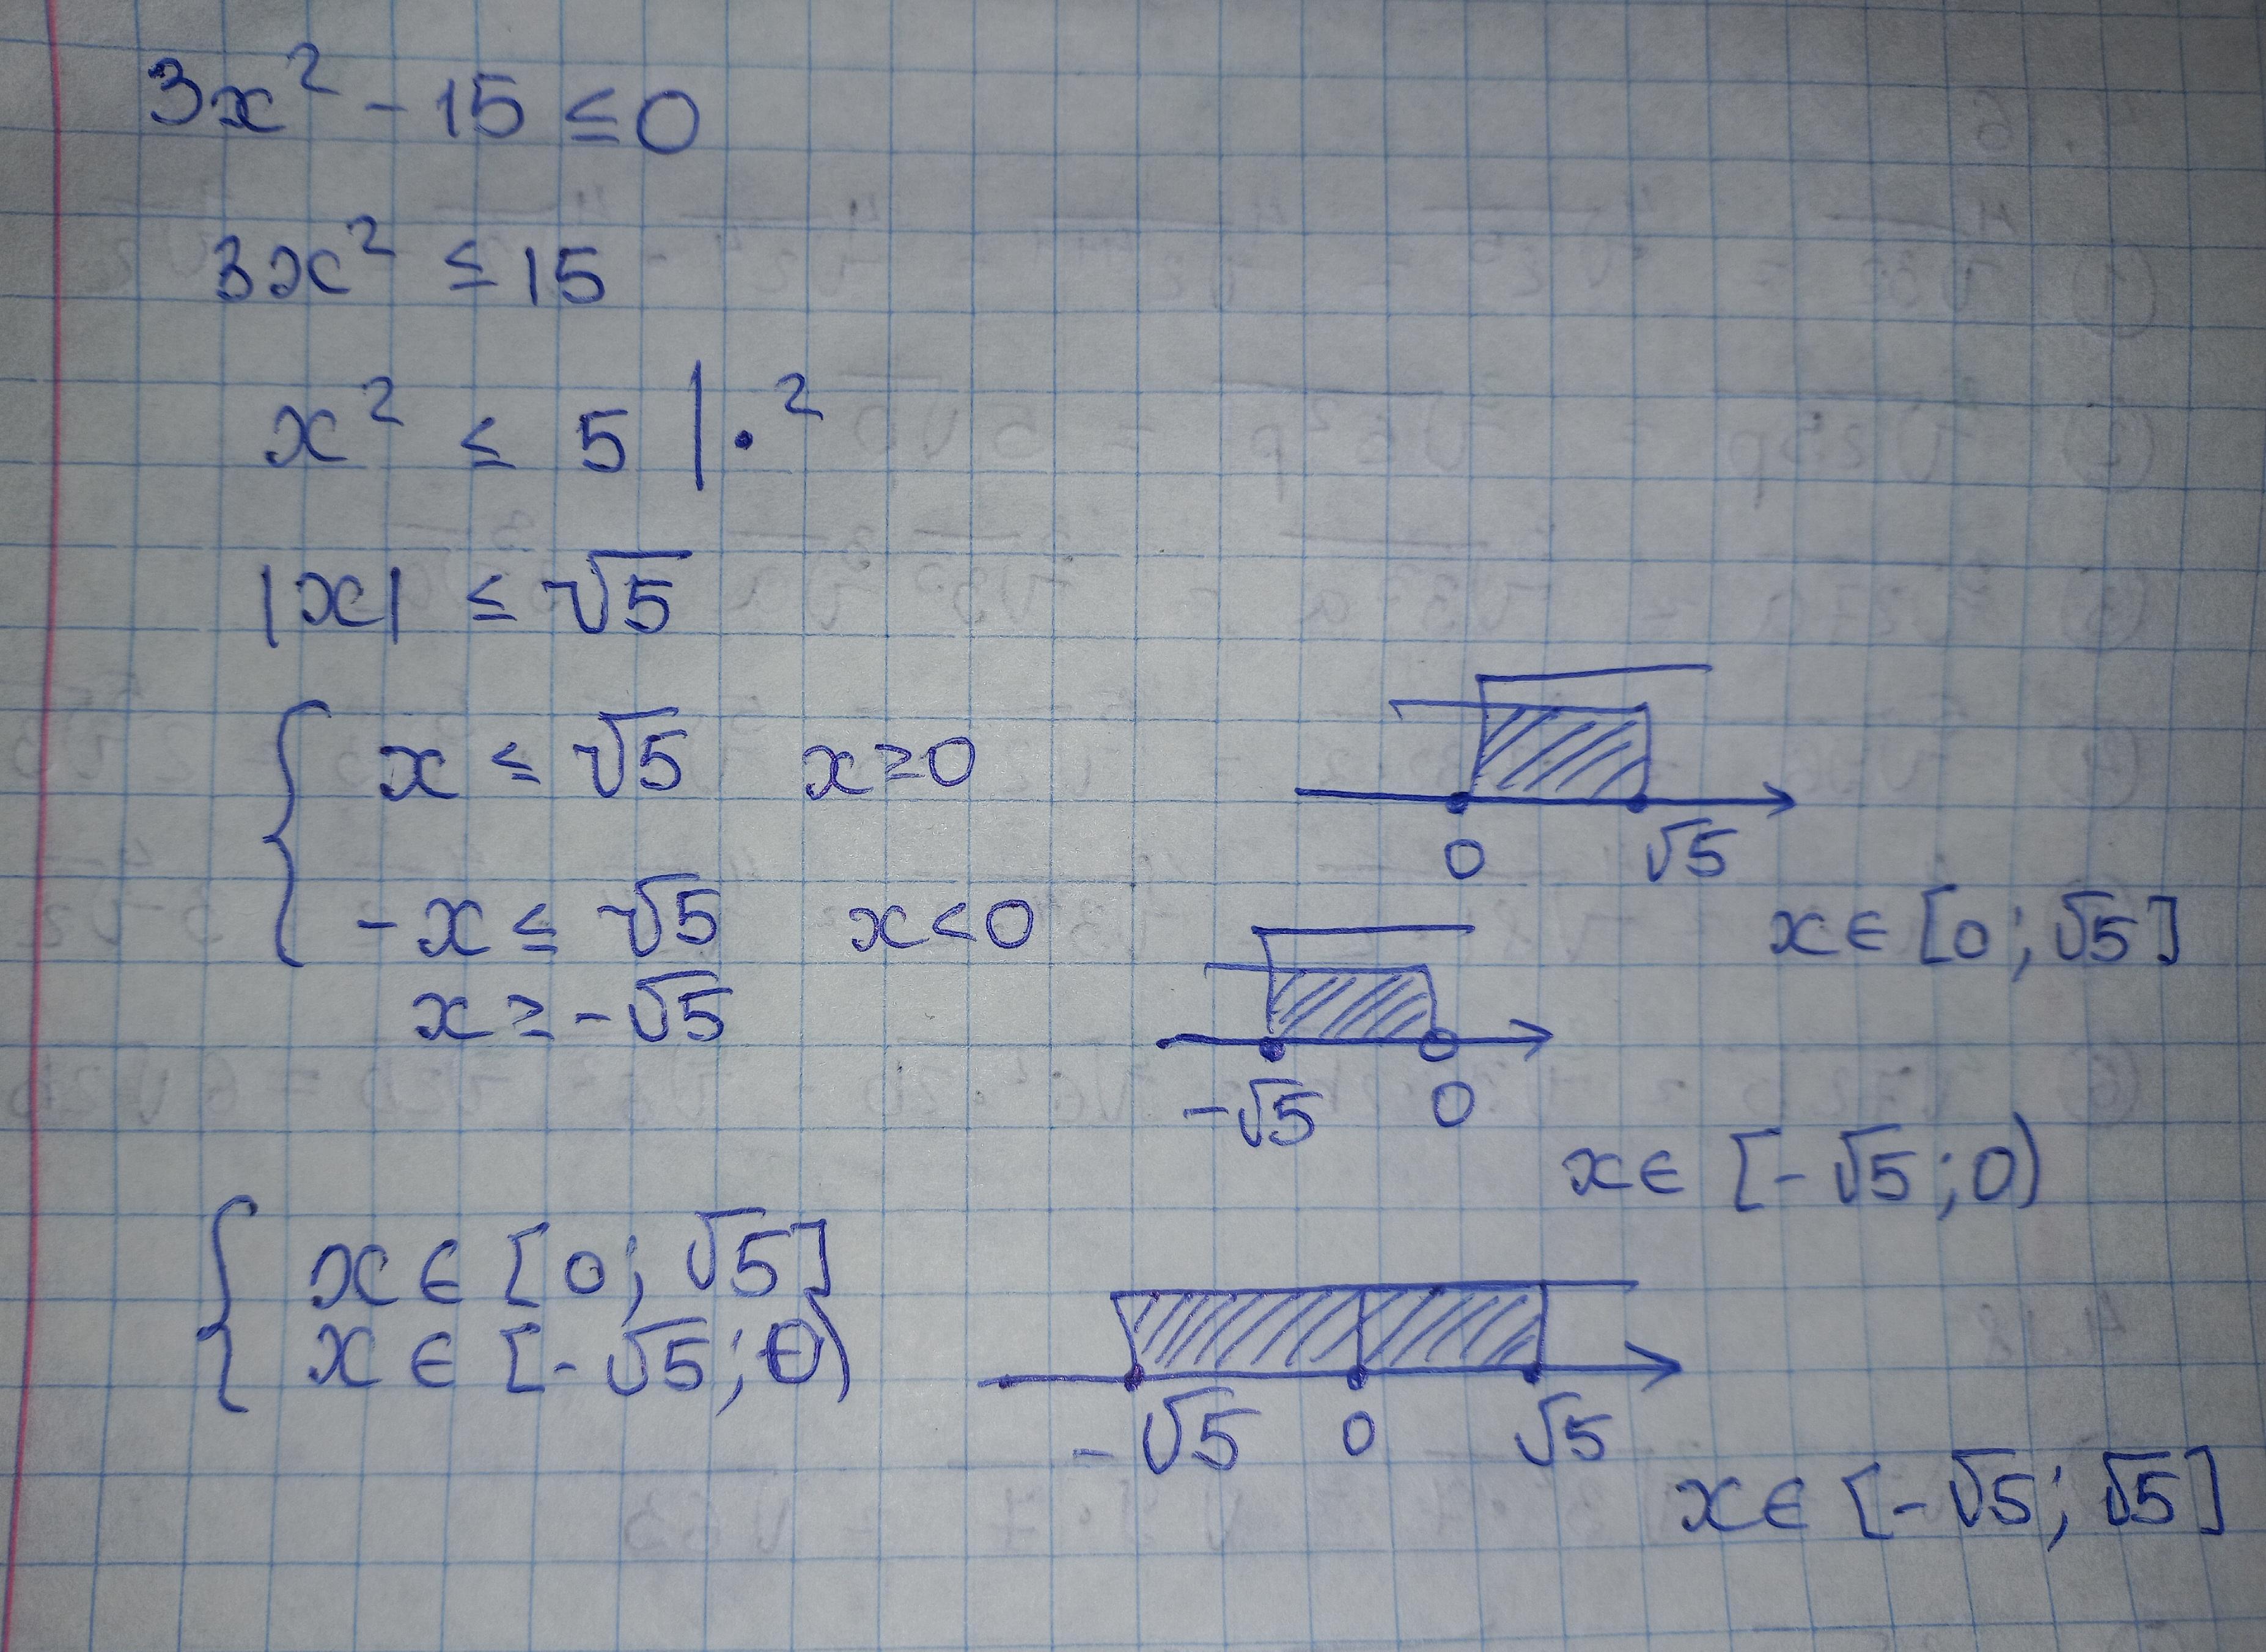 3x² - 15 ≤ 0
3x² ≤ 15
x² ≤ 5 | · ²
|x| ≤ √5
{ x ≤ √5 x ≥ 0
0 √5
x ∈ [0; √5]
-x ≤ √5 x < 0
x ≥ -√5
-√5 0
x ∈ [-√5; 0)
{ x ∈ [0; √5]
x ∈ [-√5; 0)
-√5 0 √5
x ∈ [-√5; √5]